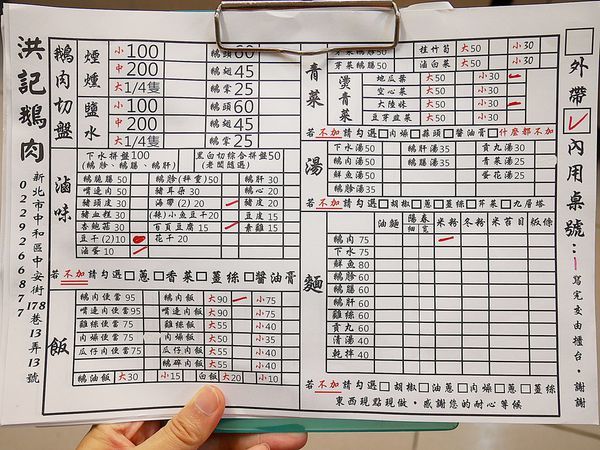 洪記鵝肉
新北市中和區中安街178巷13弄13號
0229266877
鵝肉切盤
煙燻
小100
中200
大1/4隻
鵝頭60
鵝翅45
鵝掌25
鹽水
小100
中200
大1/4隻
鵝頭60
鵝翅45
鵝掌25
滷味
下水拼盤100
(鵝胗、鵝腸、鵝肝)
黑白切綜合拼盤50
(老闆隨選)
鵝腸50
鵝胗(秤賣)50
鵝肝30
嘴邊肉50
豬耳朵30
鵝心20
豬頭皮30
海帶(2)20
豬皮15
豬血糕30
(辣)小魚豆干20
豆皮15
杏鮑菇30
百頁豆腐15
素雞15
豆干(2)10
花干20
滷蛋10
若不加請勾選□蔥□香菜□薑絲□醬油膏
飯
鵝肉便當95
鵝肉飯
大90
小75
嘴邊肉便當95
嘴邊肉飯
大90
小75
雞絲便當75
雞絲飯
大55
小40
肉燥便當75
肉燥飯
大50
小35
瓜仔肉便當75
瓜仔肉飯
大55
小40
鵝碎肉飯
大55
小40
鵝油飯
大30
小15
白飯
大20
小10
青菜
芽菜鵝腸
大50
小30
桂竹筍
大50
小30
芽菜鵝腸50
滷白菜
大50
小30
燙青菜
地瓜葉
大50
小30
空心菜
大50
小30
大陸妹
大50
小30
豆芽韭菜
大50
小30
若不加請勾選□肉燥□蒜頭□醬油膏□什麼都不加
湯
下水湯50
鵝腸湯35
貢丸湯30
鵝肉湯50
鵝肝湯35
肉燥湯25
鮮魚湯50
蛋花湯25
鵝胗湯35
若不加請勾選□胡椒□蔥□薑絲□芹菜□九層塔
麵
油麵
陽春
細 寬
米粉
冬粉
米苔目
板條
鵝肉75
下水75
鮮魚80
鵝胗60
鵝腸60
鵝肝60
雞絲60
貢丸60
清湯40
乾拌40
若不加請勾選□胡椒□油蔥□肉燥□蔥□薑絲
東西現點現做，感謝您的耐心等候
□外帶
□內用桌號：1
寫完交由櫃台，謝謝